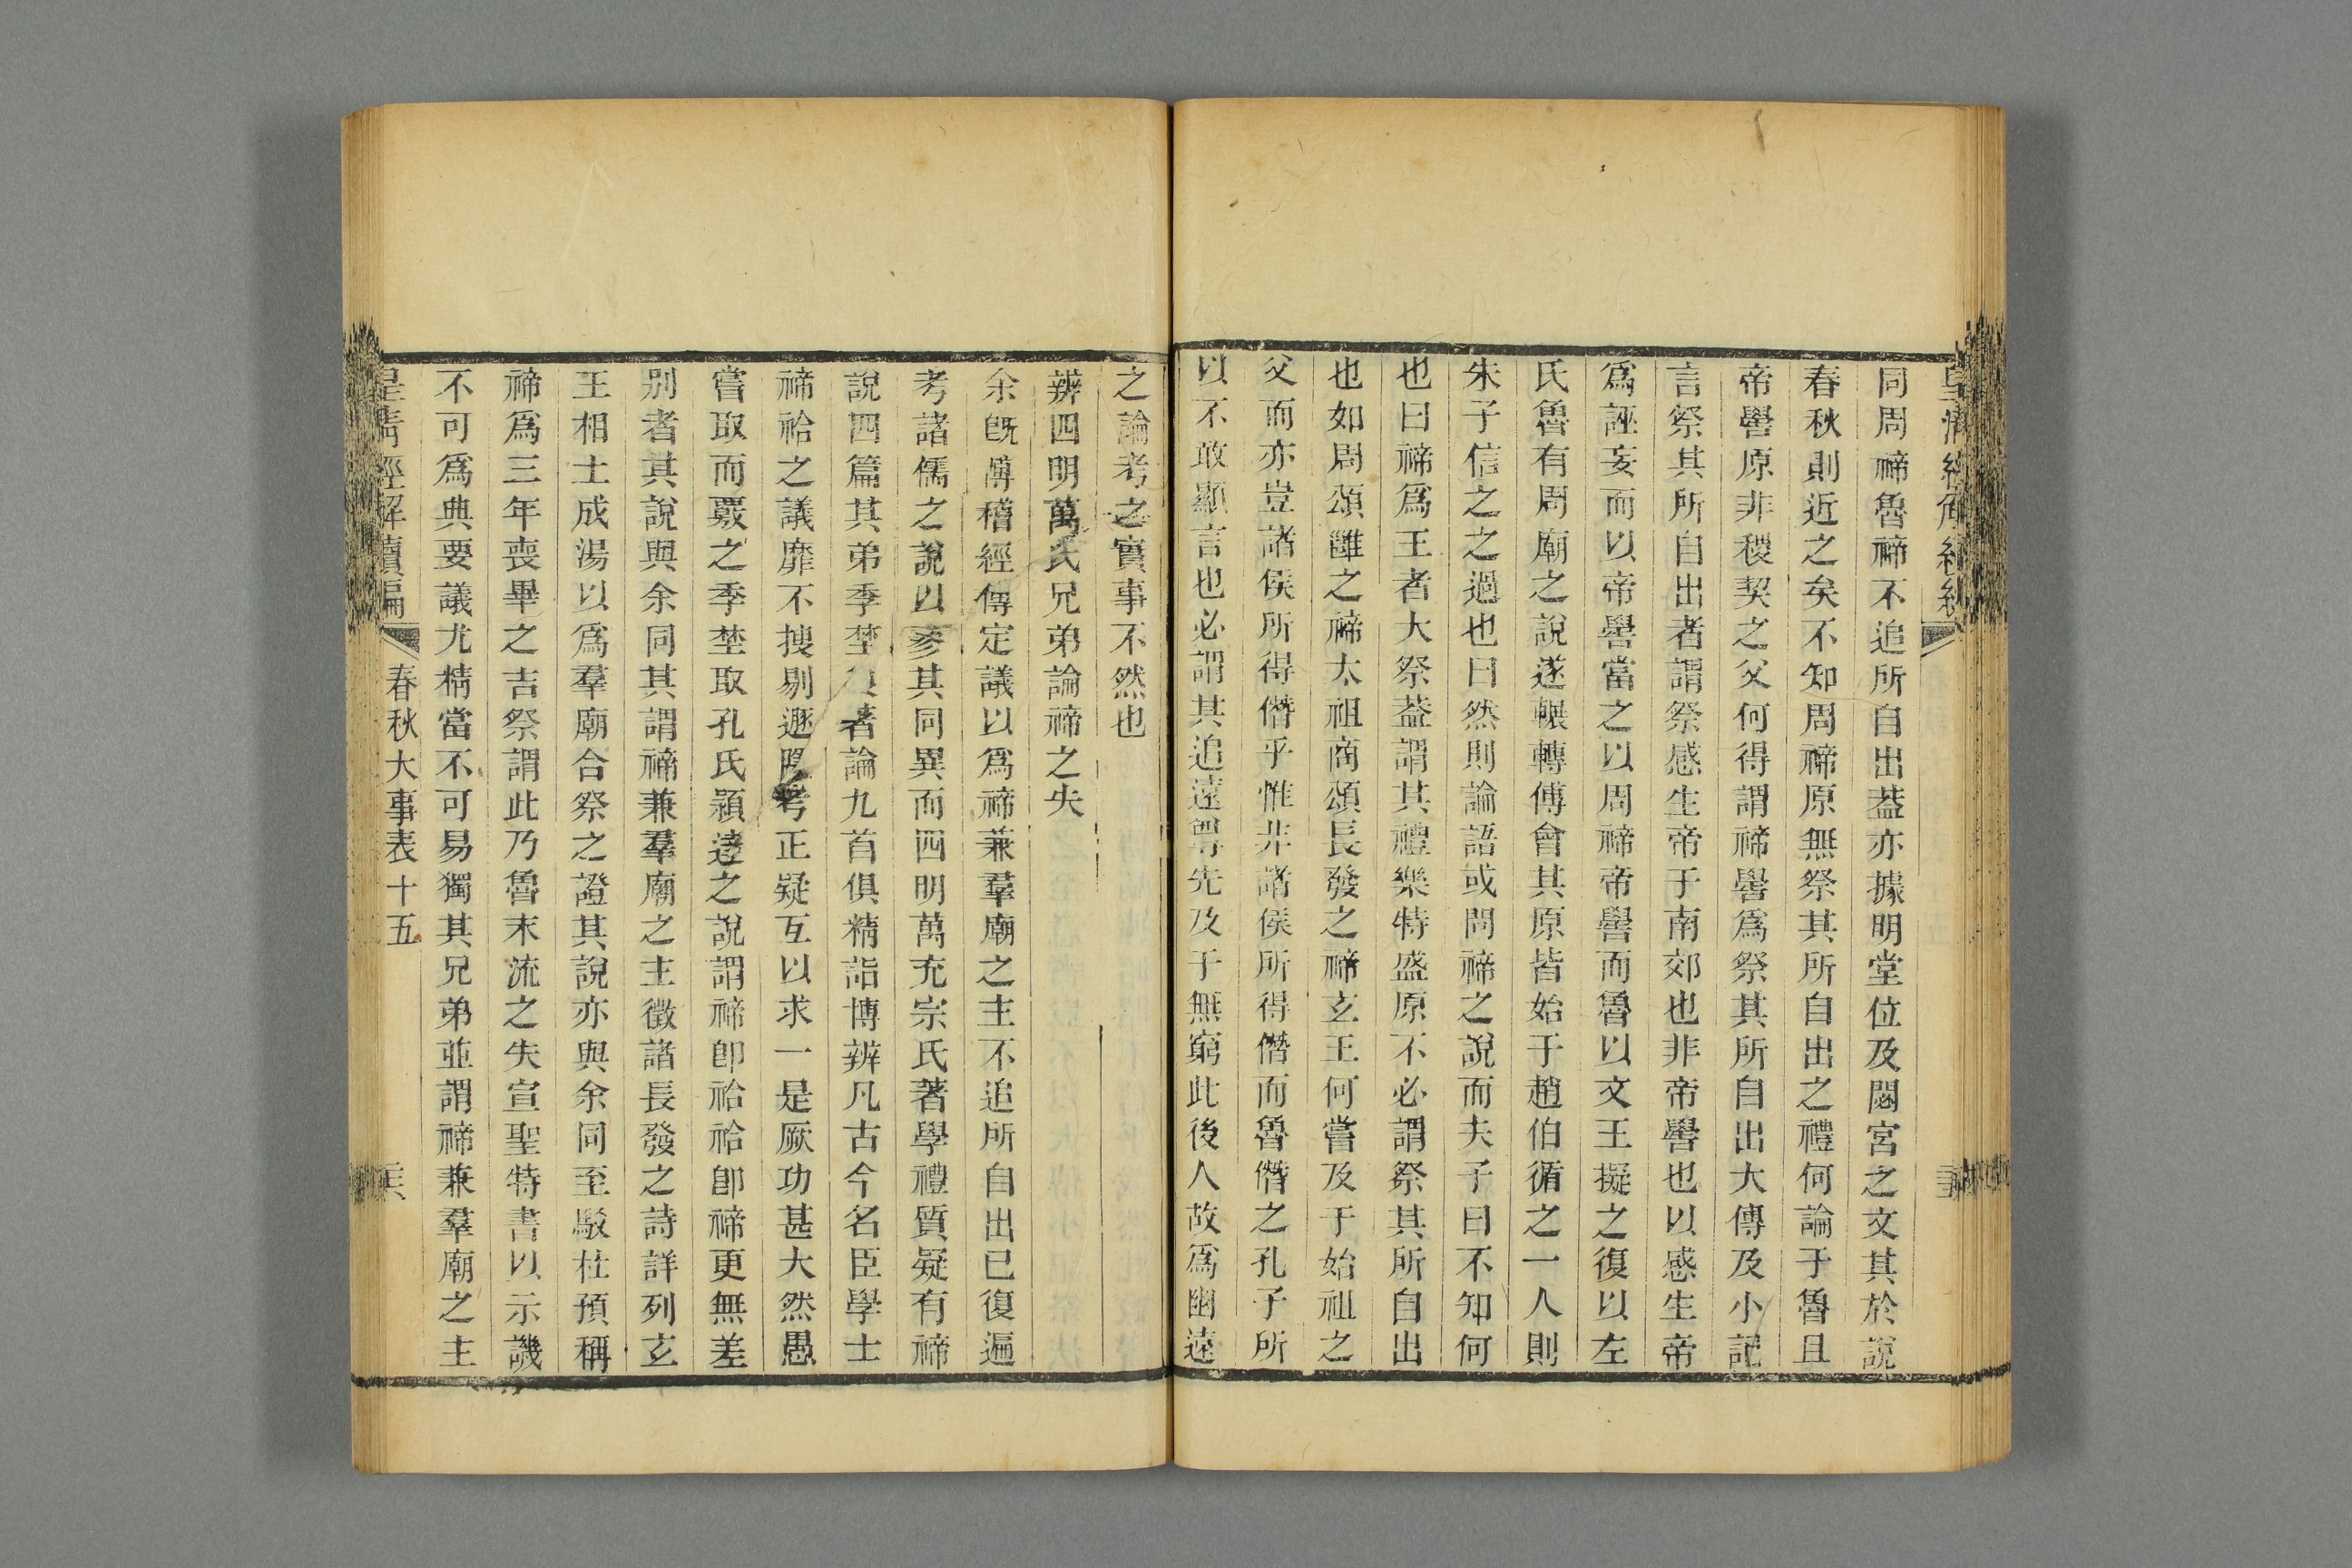 同周禘魯禘不追所自出葢亦據明堂位及閟宮之文其於說
春秋則近之矣不知周禘原無祭其所自出之禮何論于魯且
帝嚳原非稷契之父何得謂禘嚳爲祭其所自出大傳及小記
言祭其所自出者謂祭感生帝于南郊也非帝嚳也以感生帝
爲誣妄而以帝嚳當之以周禘帝嚳而魯以文王擬之復以左
氏魯有周廟之說遂輾轉傅會其原皆始于趙伯循之一人則
朱子信之之過也曰然則論語或問禘之說而夫子曰不知何
也曰禘爲王者大祭葢謂其禮樂特盛原不必謂祭其所自出
也如周頌雝之禘太祖商頌長發之禘玄王何嘗及于始祖之
父而亦豈諸侯所得僭乎惟非諸侯所得僭而魯僭之孔子所
以不敢顯言也必謂其追遠尊先及于無窮此後人故爲幽遠
之論考之實事不然也
辨四明萬氏兄弟論禘之失
余旣博稽經傳定議以爲禘兼羣廟之主不追所自出已復遍
考諸儒之說以參其同異而四明萬充宗氏著學禮質疑有禘
說四篇其弟季埜著論九首俱精詣博辨凡古今名臣學士
禘祫之議靡不搜剔遯隱考正疑互以求一是厥功甚大然愚
嘗取而覈之季埜取孔氏穎達之說謂禘卽祫祫卽禘更無差
别者其說與余同其謂禘兼羣廟之主徵諸長發之詩詳列玄
王相土成湯以爲羣廟合祭之證其說亦與余同至駁杜預稱
禘爲三年喪畢之吉祭謂此乃魯末流之失宣聖特書以示譏
不可爲典要議尤精當不可易獨其兄弟並謂禘兼羣廟之主
皇淸經解續編 春秋大事表十五